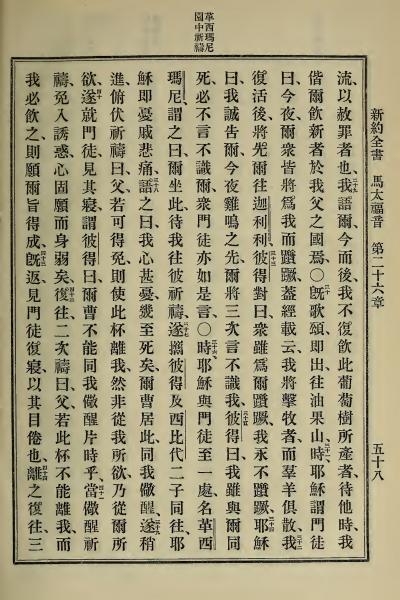 新約全書 馬太福音 第二十六章 五十八
革西瑪尼
園中祈禱
流、以赦罪者也、我語爾、今而後、我不復飲此葡萄樹所產者、待他時、我
偕爾飲新者於我父之國焉、〇既歌頌、即出、往油果山、時耶穌謂門徒
曰、今夜爾衆皆將爲我而躓蹶、蓋經載云、我將擊牧者、而羣羊俱散、我
復活後、將先爾往迦利利、彼得對曰、衆雖爲爾躓蹶、我永不躓蹶、耶穌
曰、我誠告爾、今夜雞鳴之先、爾將三次言不識我、彼得曰、我雖與爾同
死、必不言不識爾、衆門徒亦如是言、〇時耶穌與門徒至一處、名革西
瑪尼、謂之曰、爾坐此、待我往彼祈禱、遂攜彼得及西比代二子同往、耶
穌即憂戚悲痛、語之曰、我心甚憂、幾至死矣、爾曹居此、同我儆醒、遂稍
進、俯伏祈禱曰、父、若可得免、則使此杯離我、然非從我所欲、乃從爾所
欲、遂就門徒、見其寢、謂彼得曰、爾曹不能同我儆醒片時乎、當儆醒祈
禱、免入誘惑、心固願而身弱矣、復往、二次禱曰、父、若此杯不能離我、而
我必飲之、則願爾旨得成、既返、見門徒復寢、以其目倦也、離之復往、三